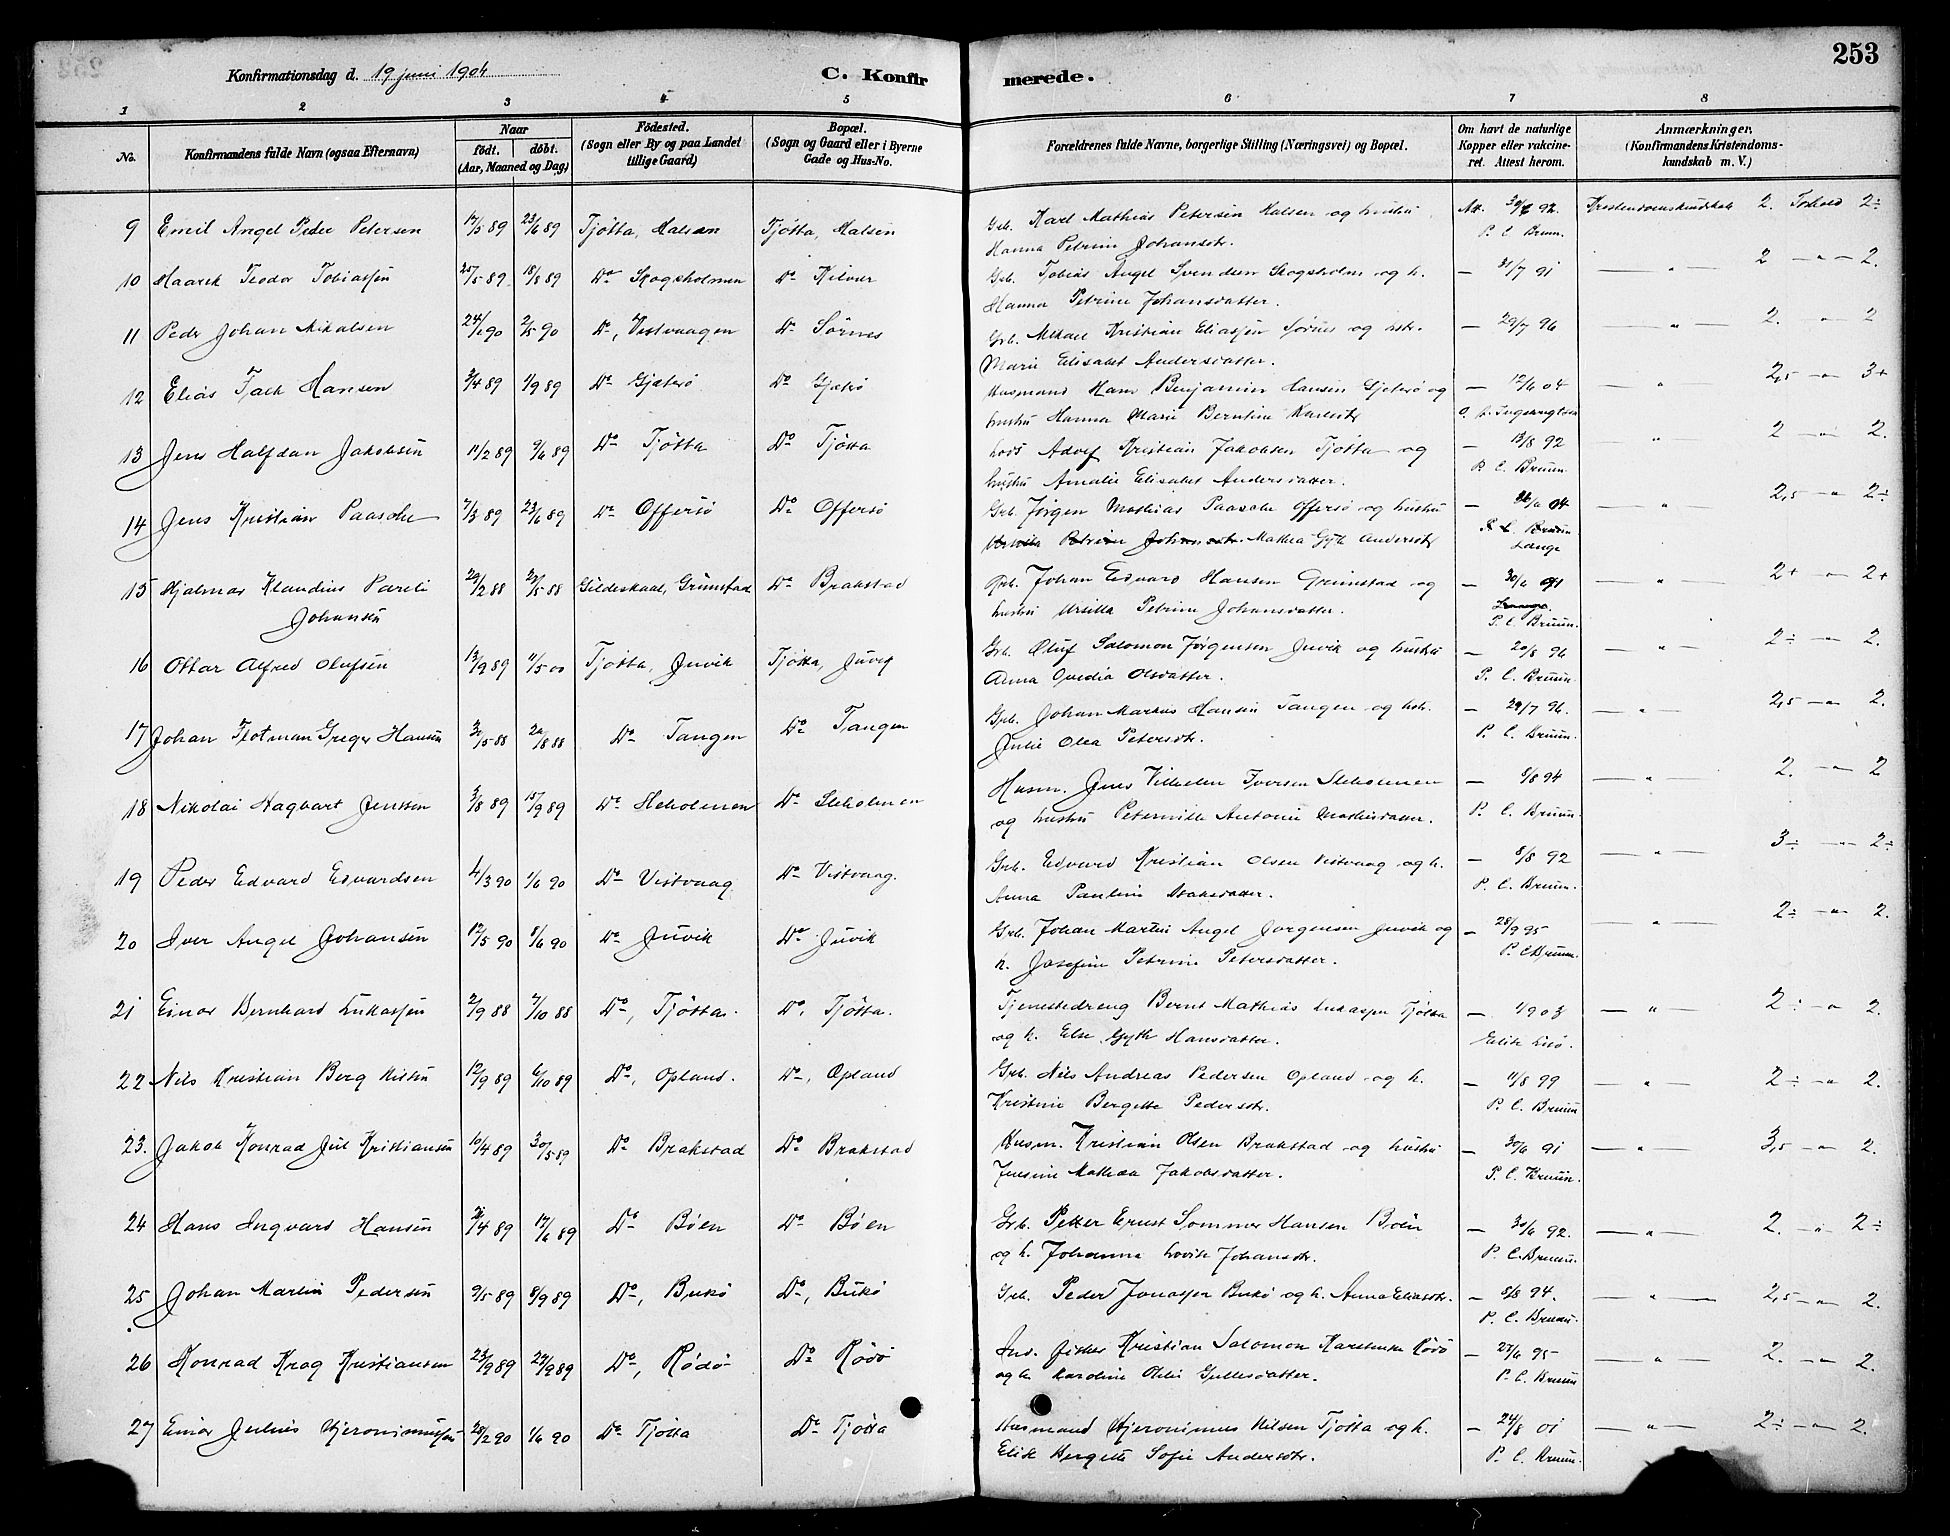 253
Konfirmationsdag d. 19 juni 1904
C. Konfirmerede.
1 2 3 4 5 6 7 8
No. Konfirmandens fulde Navn (ogsaa Efternavn) Naar født. døbt. (Aar, Maaned og Dag) Fødested. (Sogn eller By og paa Landet tillige Gaard) Bopæl. (Sogn og Gaard eller i Byerne Gade og Hus-No. Forældrenes fulde Navne, borgerlige Stilling (Næringsvei) og Bopæl. Om havt de naturlige Kopper eller vakcineret. Attest herom. Anmærkninger. (Konfirmandens Kristendomskundskab m. V.)
9 Emil Angel Peder Petersen 17/5 89 23/6 89 Tjøtta, Halsen Tjøtta, Halsen Grb. Karl Mathias Petersen Halsen og hustru Att. 92. Kristendomskundskab 2. Forhold 2÷
Hanna Petrine Johansdtr. P. C. Bruun.
10 Haarek Teodor Tobiassen 25/5 89 18/8 89 Do Skogsholmen Do Kilver Grb. Tobias Angel Svendsen Skogsholm og h. — 31/7 91 — " — 2 — " — 2.
Hanna Petrine Johansdatter.
11 Peder Johan Mikalsen 24/2 90 2/5 90 Do, Vestvaagen Do Sørnes Grb. Mikael Kristian Eliassen Sørnes og hstr. — 29/7 96 — " — 2. — " — 2
Marie Elisabet Andersdatter.
12 Elias Falk Hansen 3/4 89 1/9 89 Do Gjæterø Do Gjæterø Husmand Hans Benjamin Hansen Gjeterø og — 12/6 04 " 2,5 — " — 3+
hustru Hanna Marie Berntine Karlsdtr
13 Jens Halfdan Jakobsen 11/2 89 9/6 89 Do Tjøtta Do Tjøtta Lods Adolf Kristian Jakobsen Tjøtta og — 13/8 92 " 2 — " — 2.
hustru Amalie Elisabet Andersdatter. P. C. Bruun
14 Jens Kristian Paasche 7/3 89 23/6 89 Do Offersø Do Offersø Grb. Jørgen Mathias Paasche Offersø og hustru — 26/6 04 " 2,5 — " — 2÷
Ursilla Petrine Johansdtr. Mathea Gyth Andersdtr P. C. Bruun
Lange
15 Hjalmar Klaudius Pareli 29/2 88 22/5 88 Gildeskaal, Grimstad Do Brakstad Grb. Johan Edvard Hansen Grimstad og — 30/6 91 " 2+ — " — 2+
Johansen hustru Ursilla Petrine Johansdatter. Lange.
P. C. Bruun.
16 Ottar Alfred Olufsen 13/9 89 Tjøtta, Juvik Tjøtta, Juvig Grb. Oluf Salomon Jørgensen Juvik og hustru — 20/8 96 — " — 2÷ — " — 2.
Anna Ovedia Olsdatter. P. C. Bruun
17 Johan Flotman Greger Hansen 31/5 88 20/8 88 Do Tangen Do Tangen Grb. Johan Markus Hansen Tangen og hstr. — 29/7 96. — " — 2,5 — " — 2.
Julie Olea Petersdtr. P. C. Bruun.
18 Nikolai Hagbart Jenssen 3/8 89 15/9 89 Do Sleholmen Do Sleholmen Husm. Jens Vilhelm Iversen Sleholmen — 8/8 94 — " — 2. — " — 2
og hustru Peternille Antonie Mathisdatter. P. C. Bruun.
19 Peder Edvard Edvardsen 4/3 90 1/6 90 Do Vistvaag Do Vistvaag. Grb. Edvard Kristian Olsen Vistvaag og h. — 8/8 92 — " — 3÷ — " — 2÷
Anna Pauline Isaksdatter. P. C. Bruun.
20 Iver Angel Johansen 12/5 90 1/6 90 Do Juvik Do Juvik Grb. Johan Martin Angel Jørgensen Juvik og — 28/9 95 — " — 2÷ — " — 2.
h. Josefine Petrine Petersdatter. P. C. Bruun.
21 Einar Bernhard Lukassen 2/9 88 7/10 88 Do, Tjøtta. Do, Tjøtta. Tjenestedreng Bernt Mathias Lukassen Tjøtta — 03 — " — 2÷ — " — 2.
og h. Else Gyth Hansdatter.
22 Nils Kristian Berg Nilsen 12/9 89 6/10 89 Do, Opland. Do, Opland Grb. Nils Andreas Pedersen Opland og h. — 11/8 99 — " — 2÷ — " — 2.
Kristine Bergette Pedersdtr. P. C. Bruun
23. Jakob Konrad Juul Kristiansen 10/4 89 30/5 89 Do Brakstad Do Brakstad Husm. Kristian Olsen Brakstad og hustru — 30/6 91 — " — 3,5 — " — 2.
Jensine Mathea Jakobsdatter. P. C. Bruun.
24 Hans Ingvard Hansen 21/4 89 17/6 89 Do Bøen Do Bøen Grb. Petter Ernst Sommer Hansen Bøen — 30/6 92. — " — 2. — " — 2÷
og h. Johanna Lovise Johansdtr. P. C. Bruun.
25 Johan Martin Pedersen 9/5 89 8/9 89 Do, Bukø Do, Bukø Grb. Peder Jonassen Bukø og h. Anna Eliasdtr. — 8/8 94. — " — 2,5 — " — 2.
P. C. Bruun.
26 Konrad Krag Kristiansen 23/9 89 29/9 89 Do, Rødø Do Rødø Ind. fisker Kristian Salomon Karelius Rødø — 27/6 95 — " — 2. — " — 2.
og h. Karoline Gullesdatter. P. C. Bruun
27 Einar Julius Hjeronimussen 28/2 90 1/6 90 Do Tjøtta Do Tjøtta Husmand Hjeronimus Nilsen Tjøtta og h. — 24/8 01 — " — 2÷ — " — 2.
Elise Bergette Sofie Andersdtr. P. C. Bruun.